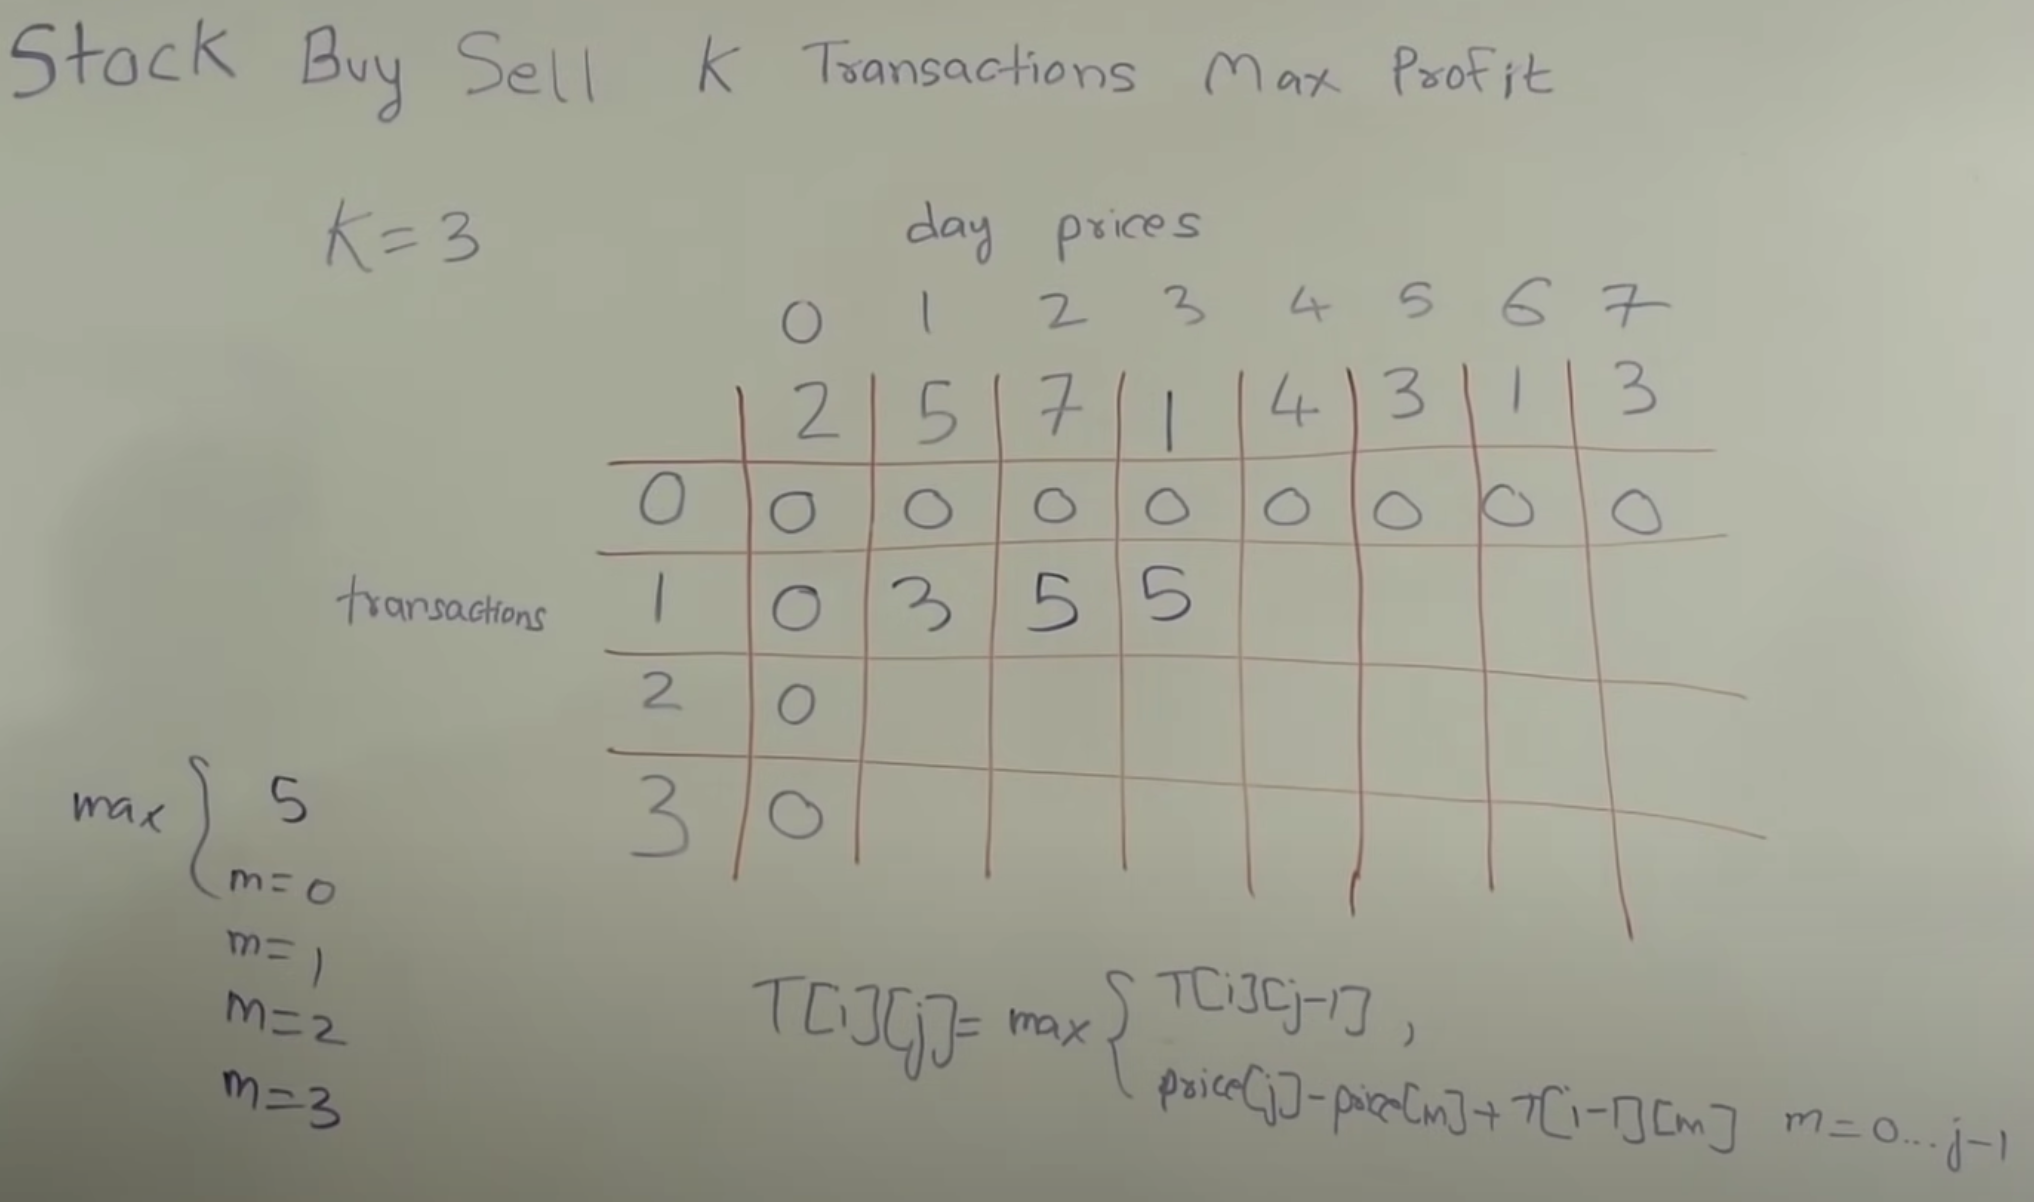 Stock Buy Sell K Transactions Max Profit
K=3
day prices
0 1 2 3 4 5 6 7
2 5 7 1 4 3 1 3
0 0 0 0 0 0 0 0 0
transactions 1 0 3 5 5
2 0
3 0
max { 5
m=0
m=1
m=2
m=3
T[i][j]= max { T[i][j-1] ,
price[j]-price[m]+T[i-1][m] m=0...j-1